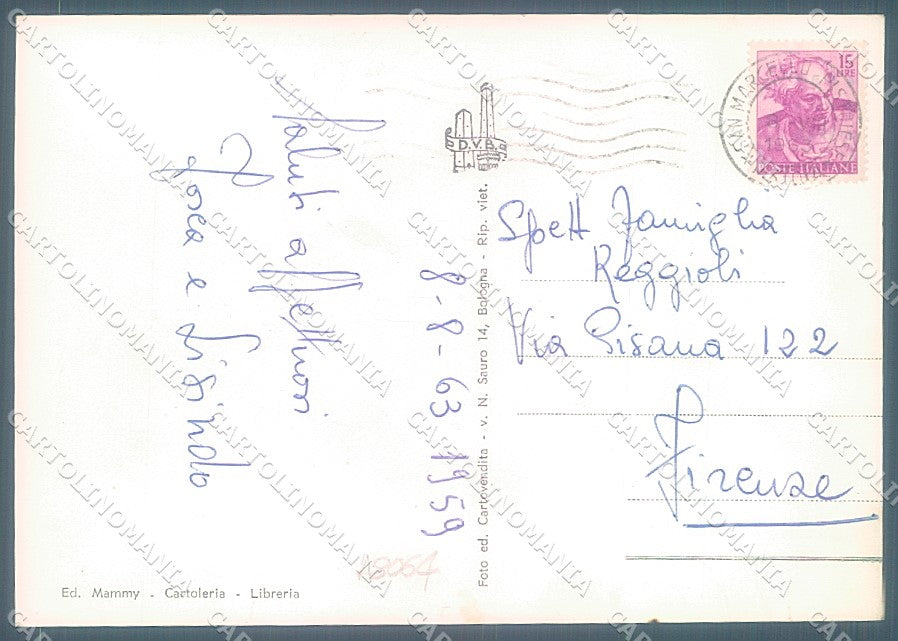 Saluti affettuosi
8-8-63 1959
D.V.B.
Foto ed. Cartovendita - v. N. Sauro 14, Bologna - Rip. viet.
15
LIRE
POSTE ITALIANE
SAN MARCELLO
Spett Famiglia
Reggioli
Via Pisana 122
Firenze
Ed. Mammy - Cartoleria - Libreria
18054
CARTOLINOMANIA